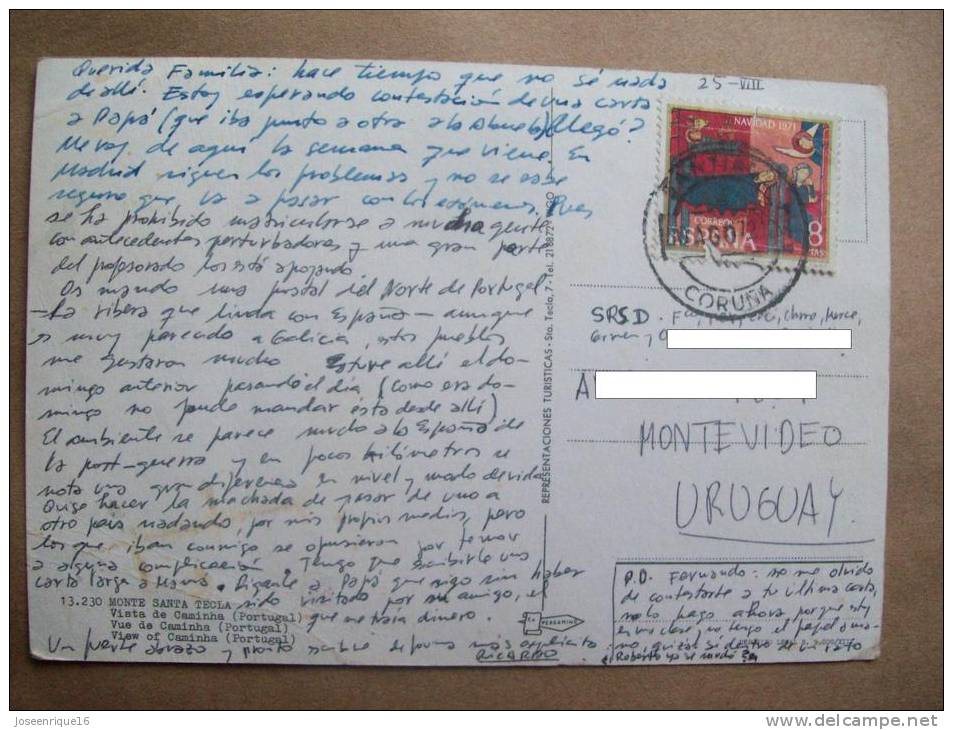 25-VIII
Querida Familia: hace tiempo que no sé nada
de allí. Estoy esperando contestación de una carta
a Papá (que iba junto a otra a la Abuela) ¿llegó?
Me voy de aquí la semana que viene. En
Madrid siguen los problemas y no se sabe
seguro que va a pasar con los exámenes. Pues
se ha prohibido matricularse a mucha gente
con antecedentes perturbadores y una gran parte
del profesorado los está apoyando.
Os mando una postal del Norte de Portugal
-La ribera que linda con España- aunque
es muy parecido a Galicia, estos pueblos
me gustaron mucho. Estuve allí el do-
mingo anterior pasando el día (como era do-
mingo no pude mandar ésta desde allí)
El ambiente se parece mucho a la España de
la post-guerra y en pocos kilómetros se
nota una gran diferencia en nivel y modo de vida
Quise hacer la machada de pasar de uno a
otro país nadando, por mis propios medios, pero
los que iban conmigo se opusieron por temor
a alguna complicación. Tengo que escribirle una
carta larga a Mamá. Díganle a Papá que sigo sin haber
sido visitado por su amigo, el
que me traía dinero.
Un fuerte abrazo y pronto escribe de forma más explícita
RICARDO
13.230 MONTE SANTA TECLA
Vista de Caminha (Portugal)
Vue de Caminha (Portugal)
View of Caminha (Portugal)
REPRESENTACIONES TURISTICAS - Sta. Tecla, 7 - Tel. 218872 - VIGO
PERGAMINO
NAVIDAD 1971
CORREOS
ESPAÑA
8
PTAS
AGO
CORUÑA
SRS D.
A
MONTEVIDEO
URUGUAY
P.D. Fernando: no me olvido
de contestarte a tu última carta,
no lo hago ahora porque estoy
en una clase no tengo el papel a ma-
no, quizás si dentro de un rato
Roberto ya se mudó?
Joseenrique16
www.delcampe.net